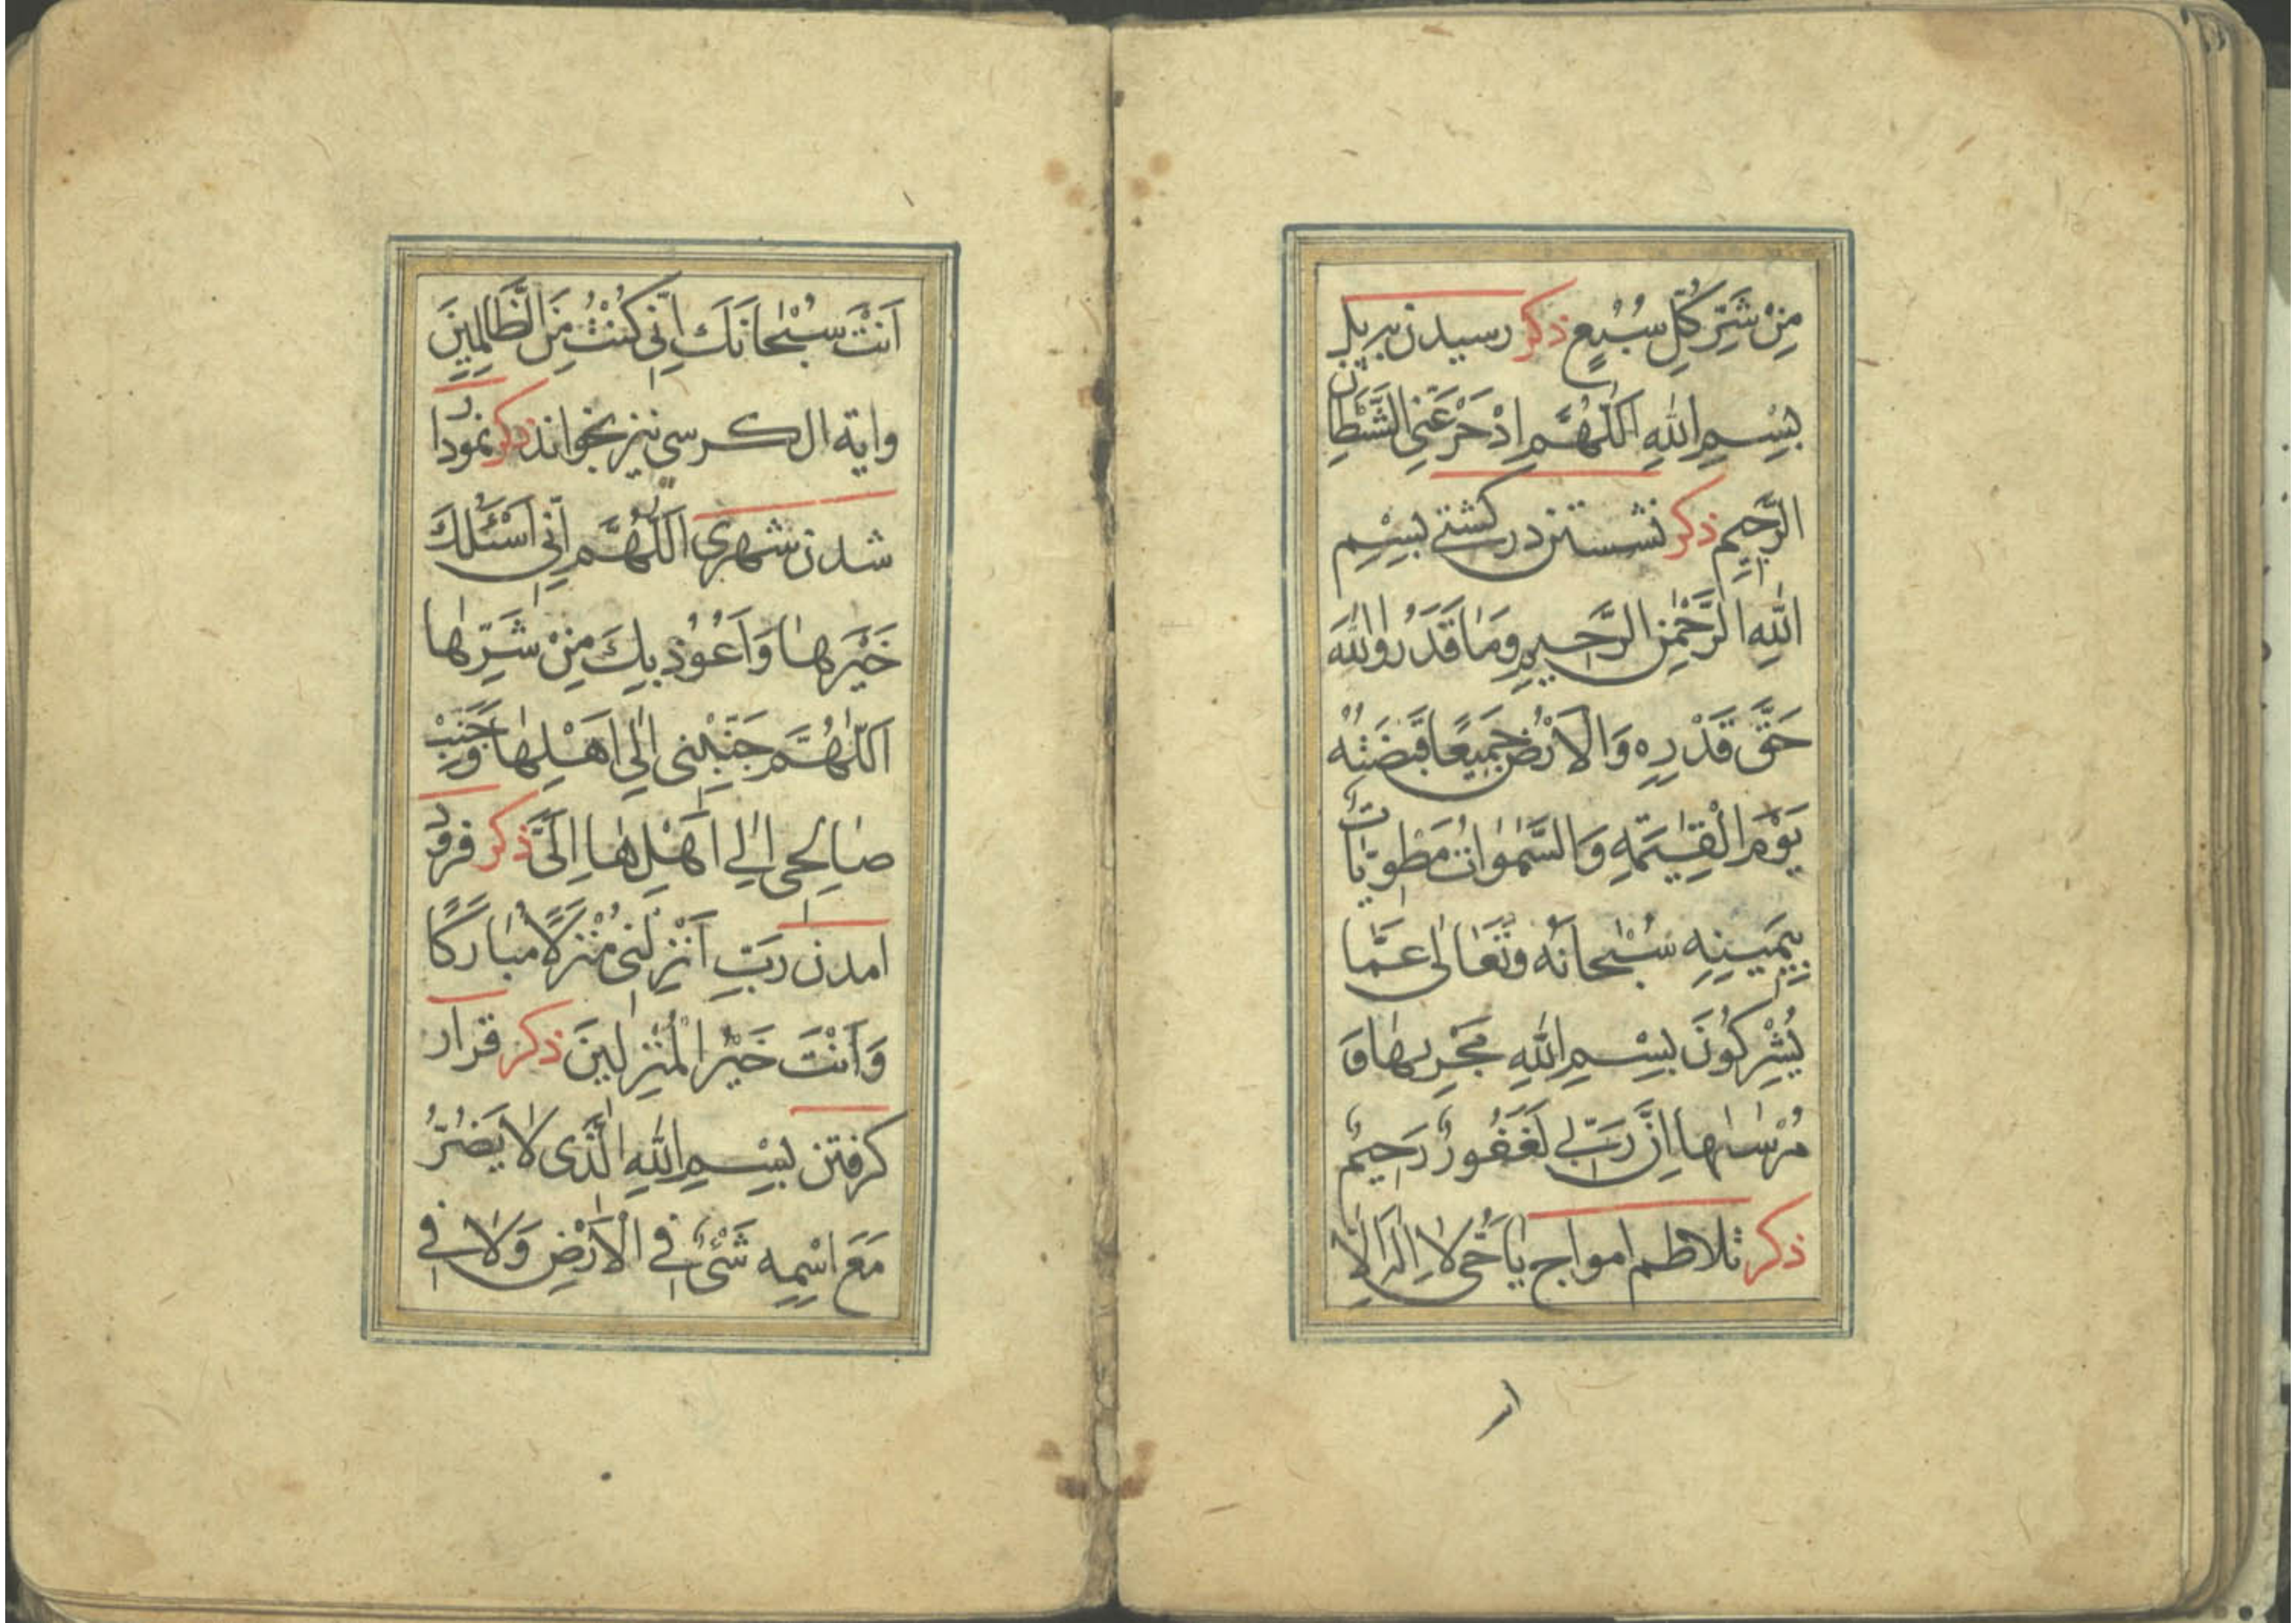 مِنْ شَرِّ كُلِّ سَبُعٍ ذکر رسیدن بر پل
بِسْمِ اللهِ اَللّٰهُمَّ ادْحَرْ عَنِّي الشَّيْطَانَ
الرَّجِيمَ ذکر نشستن در کشتی بِسْمِ
اللهِ الرَّحْمٰنِ الرَّحِيمِ وَمَا قَدَرُوا اللهَ
حَقَّ قَدْرِهِ وَالْاَرْضُ جَمِيعًا قَبْضَتُهُ
يَوْمَ الْقِيٰمَةِ وَالسَّمٰوَاتُ مَطْوِيَّاتٌ
بِيَمِينِهِ سُبْحَانَهُ وَتَعَالٰى عَمَّا
يُشْرِكُونَ بِسْمِ اللهِ مَجْرٖىهَا وَ
مُرْسٰىهَا اِنَّ رَبِّي لَغَفُورٌ رَحِيمٌ
ذکر تلاطم امواج يَا حَيُّ لَا اِلٰهَ اِلَّا
اَنْتَ سُبْحَانَكَ اِنِّي كُنْتُ مِنَ الظَّالِمِينَ
واية الكرسى نیز بخواند ذکر نمودار
شدن شهری اَللّٰهُمَّ اِنِّي اَسْئَلُكَ
خَيْرَهَا وَاَعُوذُ بِكَ مِنْ شَرِّهَا
اَللّٰهُمَّ حَبِّبْنِي اِلٰى اَهْلِهَا وَحَبِّبْ
صَالِحِي اَهْلِهَا اِلَيَّ ذکر فرود
امدن رَبِّ اَنْزِلْنِي مُنْزَلًا مُبَارَكًا
وَاَنْتَ خَيْرُ الْمُنْزِلِينَ ذکر قرار
کرفتن بِسْمِ اللهِ الَّذِى لَا يَضُرُّ
مَعَ اسْمِهِ شَىْءٌ فِي الْاَرْضِ وَلَا فِي